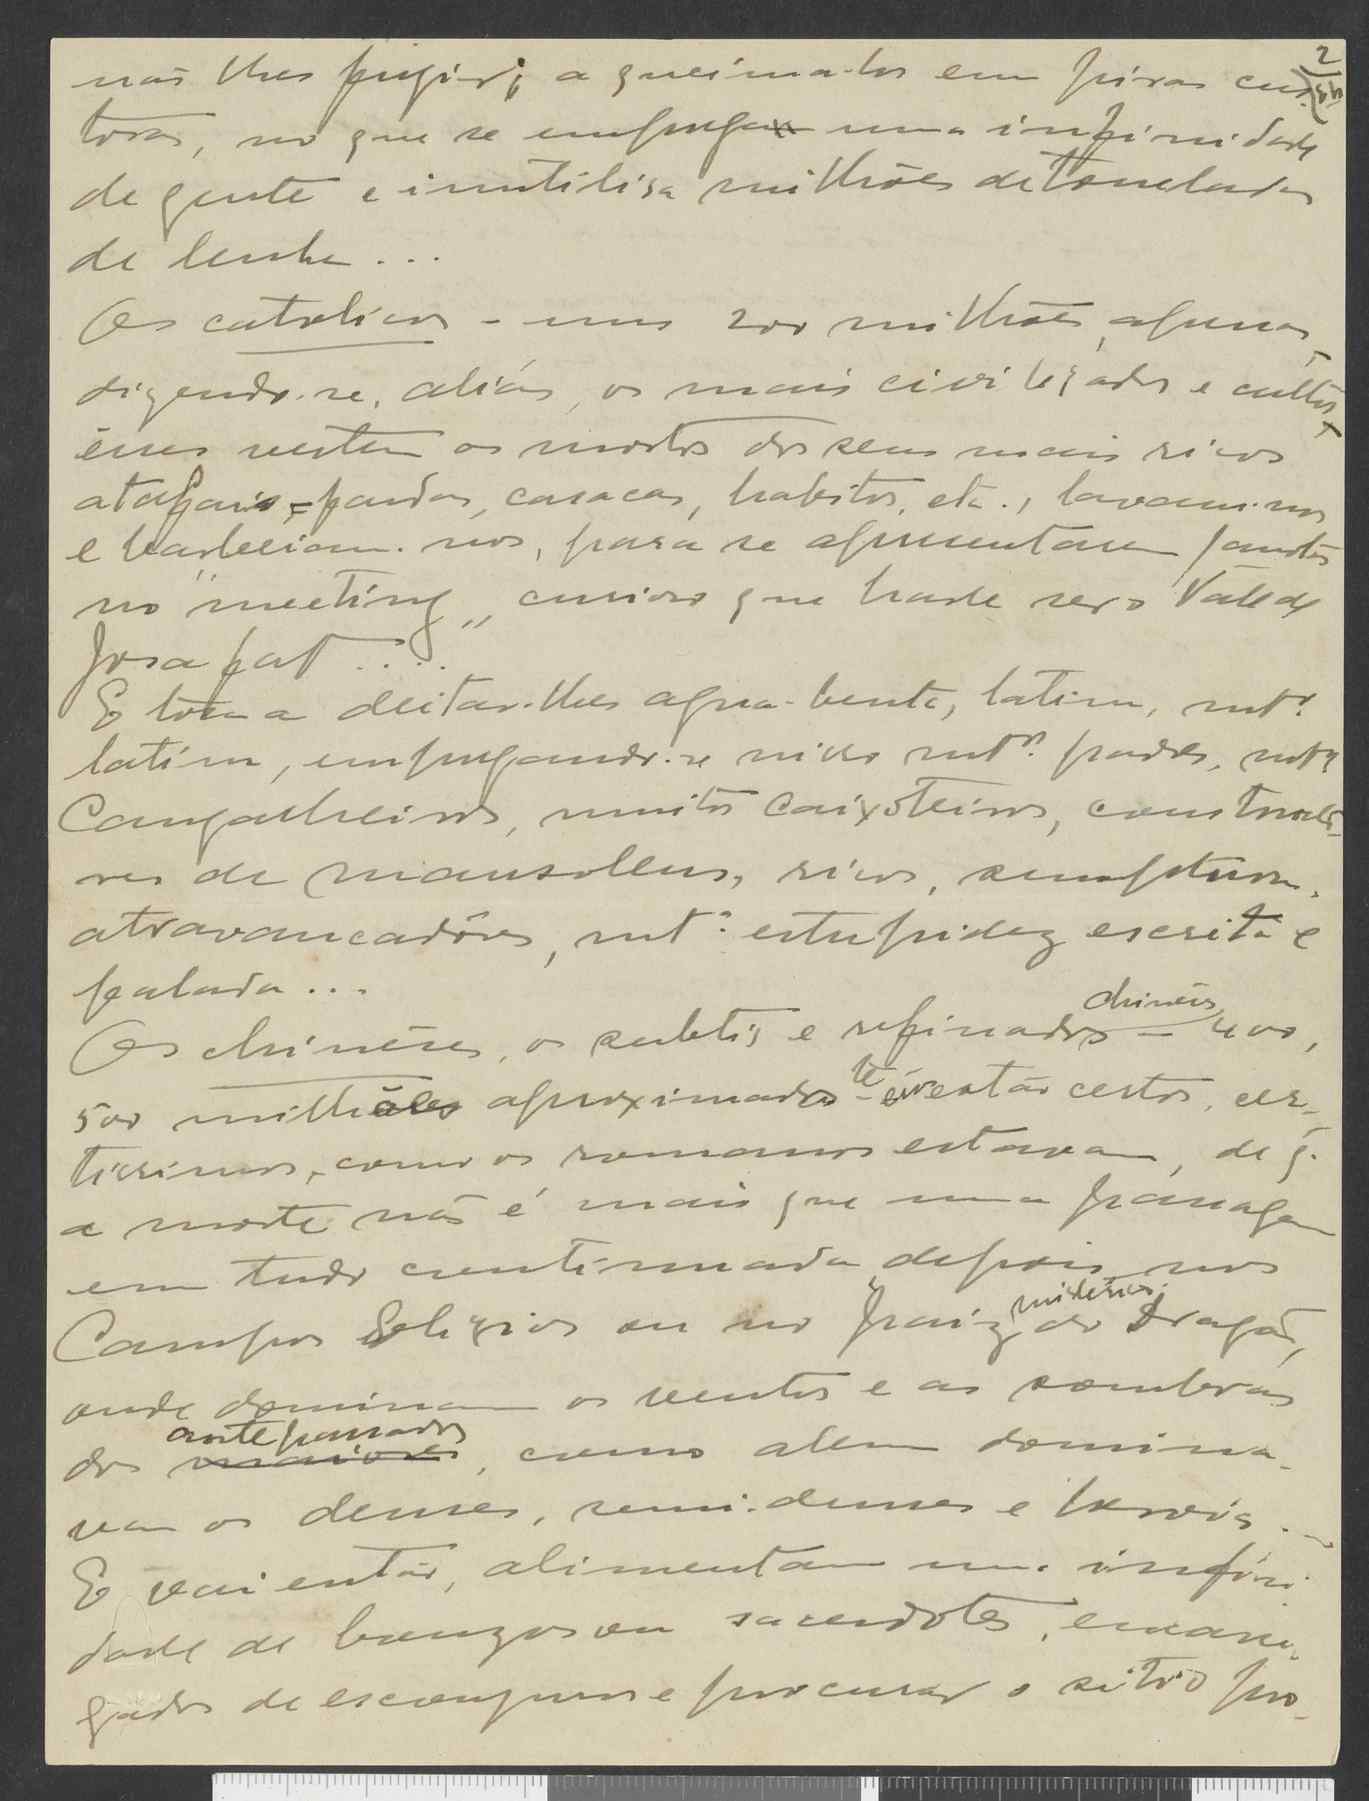 não lhes fugir; a queima-los em piras cus-
tosas, no que se emprega uma infinidade
de gente e inutilisa milhões de toneladas
de lenha...
Os catolicos - uns 200 milhões, apenas,
dizendo-se, aliás, os mais civilizados e cultos,
êsses vestem os mortos dos seus mais ricos
atafais - fardas, casacas, habitos, etc., lavam-nos
e barbeiam-nos, para se apresentarem janotas
no "meeting" curioso que hade ser o Vale de
Josafat....
E tóca a deitar-lhes agua-benta, latim, mtº.
latim, empregando-se nisso mtºs. padres, mtºs
cangalheiros, muitos caixoteiros, constructo-
res de mausoleus, ricos, sumptuosos,
atravancadôres, mtª. estupidez escrita e
falada...
Os chinêses, os subtis e refinados chinêses - 400,
500 milhões aproximadamte - êsses estão certos, cer-
tissimos, como os romanos estavam, de q.
a morte não é mais que uma passagem
em tudo continuada depois nos
Campos Elyzios ou no paiz misterioso do Dragão,
onde dominam os ventos e as sombras
dos antepassados, como alem domina-
vam os deuses, semi-deuses e herois...
E vai então, alimentam uma infini-
dade de bonzos ou sacerdotes, encarre-
gados de esconjuros e procurar o sitio pro-